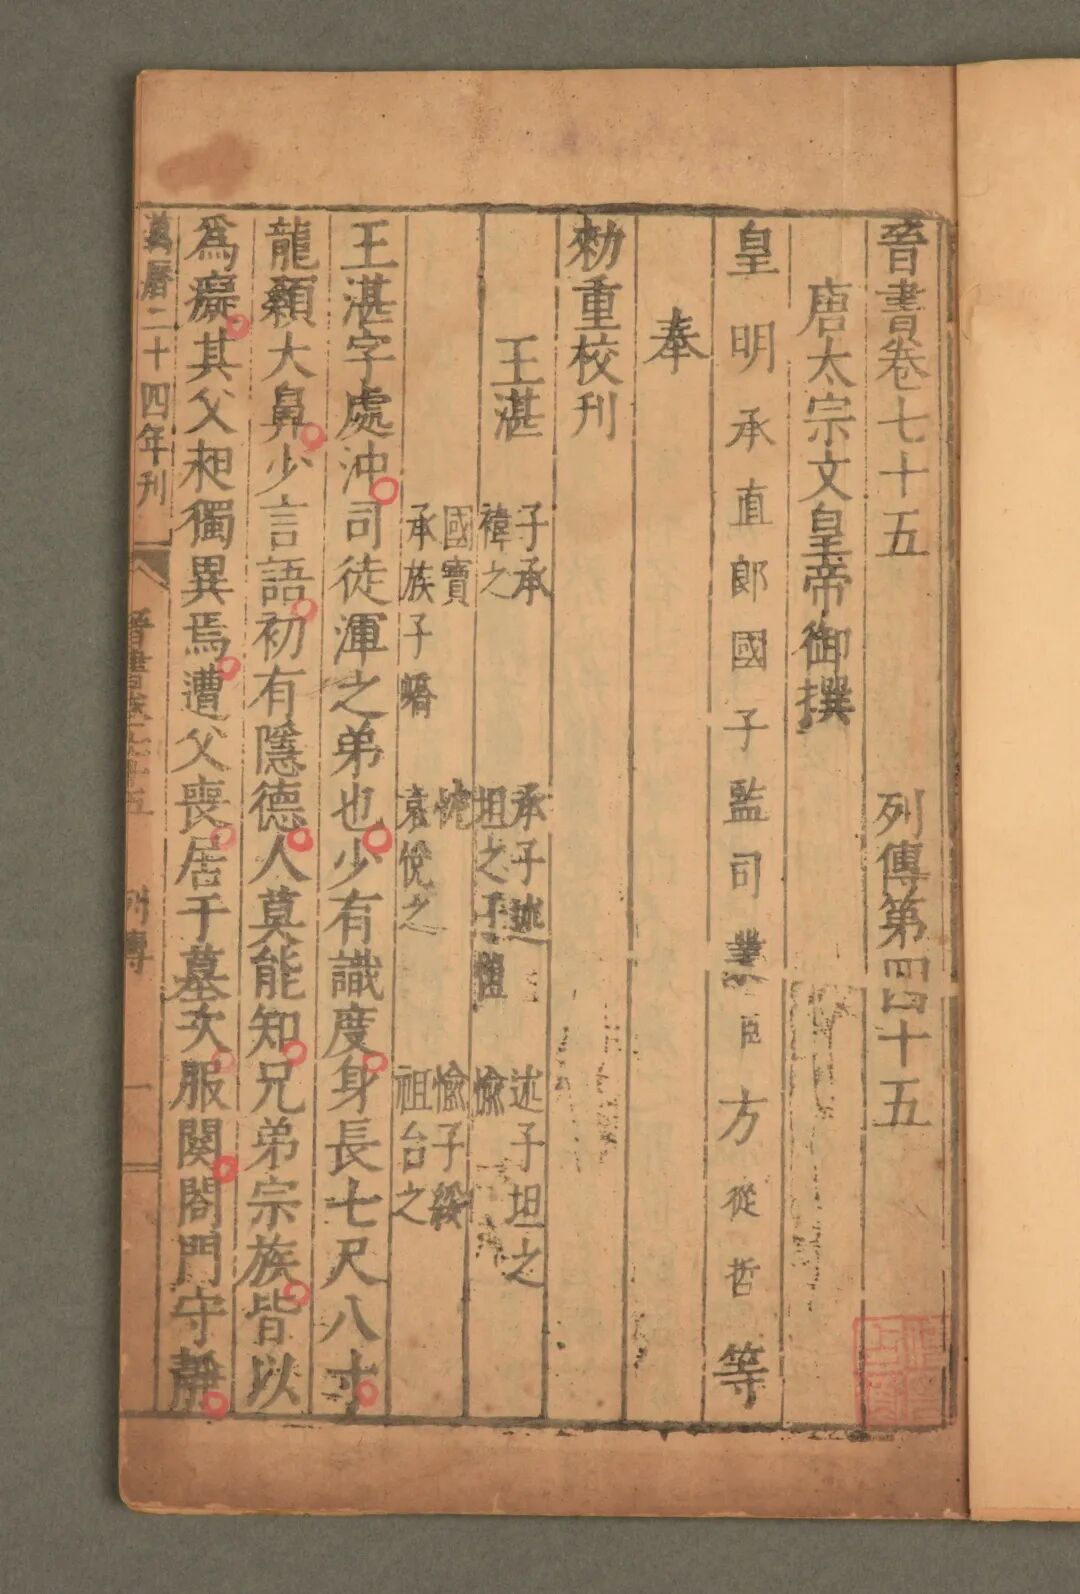 晉書卷七十五　列傳第四十五
唐太宗文皇帝御撰
皇明承直郎國子監司業臣方從哲等
奉
勑重校刊
王湛　子承　承子述　述子坦之
禕之　坦之子愷　愉
國寶　忱　愉子綏
承族子嶠　袁悅之　祖台之
王湛字處沖司徒渾之弟也少有識度身長七尺八寸
龍顙大鼻少言語初有隱德人莫能知兄弟宗族皆以
爲癡其父昶獨異焉遭父喪居于墓次服闋闔門守靜
萬曆二十四年刊
晉書卷七十五　列傳　一